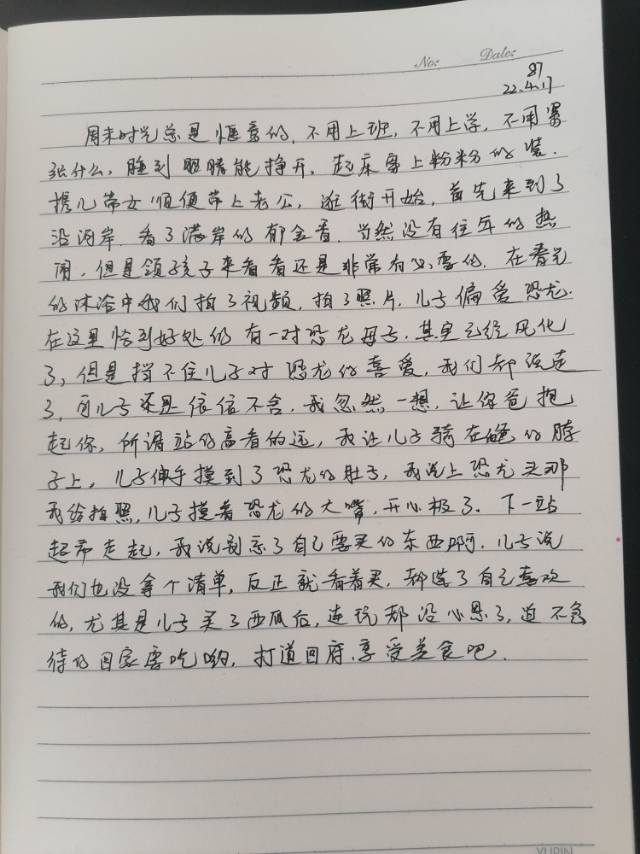 No:    Date:
87
22.4.17
周末时光总是惬意的，不用上班，不用上学，不用紧
张什么，睡到眼睛能挣开，起床穿上粉粉的装.
携儿带女顺便带上老公，逛街开始，首先来到了
沿河岸.看了满岸的郁金香.当然没有往年的热
闹，但是领孩子来看看还是非常有必要的.在春光
的沐浴中我们拍了视频，拍了照片.儿子偏爱恐龙.
在这里恰到好处的有一对恐龙母子.其实已经风化
了，但是挡不住儿子对恐龙的喜爱，我们都说走
了，可儿子还是依依不舍.我忽然一想，让你爸抱
起你，所谓站的高看的远，我让儿子骑在爸的脖
子上，儿子伸手摸到了恐龙的肚子，我说上恐龙头那
我给拍照，儿子摸着恐龙的大嘴，开心极了.下一站
超市走起，我说别忘了自己要买的东西啊.儿子说
我们也没拿个清单，反正就看着买，都选了自己喜欢
的，尤其是儿子买了西瓜后，连玩都没心思了，迫不急
待的回家要吃哟，打道回府.享受美食吧.
YURIN